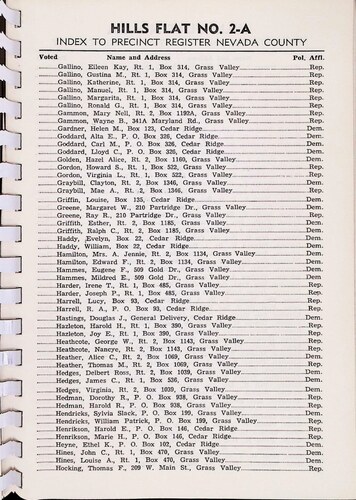 HILLS FLAT NO. 2-A
INDEX TO PRECINCT REGISTER NEVADA COUNTY
Voted Name and Address Pol. Affl.
Gallino, Eileen Kay, Rt. 1, Box 314, Grass Valley Rep.
Gallino, Gustina M., Rt. 1, Box 314, Grass Valley Rep.
Gallino, Katherine, Rt. 1, Box 314, Grass Valley Rep.
Gallino, Manuel, Rt. 1, Box 314, Grass Valley Rep.
Gallino, Margarita, Rt. 1, Box 314, Grass Valley Rep.
Gallino, Ronald G., Rt. 1, Box 314, Grass Valley Rep.
Gammon, Mary Nell, Rt. 2, Box 1192A, Grass Valley Rep.
Gammon, Wayne B., 341A Maryland Rd., Grass Valley Rep.
Gardner, Helen M., Box 123, Cedar Ridge Dem.
Goddard, Alta E., P. O. Box 326, Cedar Ridge Dem.
Goddard, Carl M., P. O. Box 326, Cedar Ridge Dem.
Goddard, Lloyd C., P. O. Box 326, Cedar Ridge Dem.
Golden, Hazel Alice, Rt. 2, Box 1160, Grass Valley Dem.
Gordon, Howard S., Rt. 1, Box 522, Grass Valley Rep.
Gordon, Virginia L., Rt. 1, Box 522, Grass Valley Rep.
Graybill, Clayton, Rt. 2, Box 1346, Grass Valley Dem.
Graybill, Mae A., Rt. 2, Box 1346, Grass Valley Rep.
Griffin, Louise, Box 135, Cedar Ridge Dem.
Greene, Margaret W., 210 Partridge Dr., Grass Valley Rep.
Greene, Ray R., 210 Partridge Dr., Grass Valley Rep.
Griffith, Esther, Rt. 2, Box 1185, Grass Valley Dem.
Griffith, Ralph C., Rt. 2, Box 1185, Grass Valley Dem.
Haddy, Evelyn, Box 22, Cedar Ridge Dem.
Haddy, William, Box 22, Cedar Ridge Dem.
Hamilton, Mrs. A. Jennie, Rt. 2, Box 1134, Grass Valley Dem.
Hamilton, Edward F., Rt. 2, Box 1134, Grass Valley Dem.
Hammes, Eugene F., 509 Gold Dr., Grass Valley Rep.
Hammes, Mildred E., 509 Gold Dr., Grass Valley Rep.
Harder, Irene T., Rt. 1, Box 485, Grass Valley Rep.
Harder, Joseph P., Rt. 1, Box 485, Grass Valley Rep.
Harrell, Lucy, Box 93, Cedar Ridge Rep.
Harrell, R. A., P. O. Box 93, Cedar Ridge Rep.
Hastings, Douglas J., General Delivery, Cedar Ridge Dem.
Hazleton, Harold H., Rt. 1, Box 390, Grass Valley Rep.
Hazleton, Joy E., Rt. 1, Box 390, Grass Valley Rep.
Heathcote, George W., Rt. 2, Box 1143, Grass Valley Rep.
Heathcote, Nancye, Rt. 2, Box 1143, Grass Valley Rep.
Heather, Alice C., Rt. 2, Box 1069, Grass Valley Dem.
Heather, Thomas M., Rt. 2, Box 1069, Grass Valley Rep.
Hedges, Delbert Ross, Rt. 2, Box 1039, Grass Valley Dem.
Hedges, James C., Rt. 1, Box 536, Grass Valley Dem.
Hedges, Virginia, Rt. 2, Box 1039, Grass Valley Dem.
Hedman, Dorothy B., P. O. Box 938, Grass Valley Rep.
Hedman, Harold R., P. O. Box 938, Grass Valley Rep.
Hendricks, Sylvia Slack, P. O. Box 199, Grass Valley Dem.
Hendricks, William Patrick, P. O. Box 199, Grass Valley Dem.
Henrikson, Harold E., P. O. Box 146, Cedar Ridge Dem.
Henrikson, Marie H., P. O. Box 146, Cedar Ridge Rep.
Heyne, Ethel K., P. O. Box 102, Cedar Ridge Dem.
Hines, John C., Rt. 1, Box 470, Grass Valley Dem.
Hines, Louise A., Rt. 1, Box 470, Grass Valley Dem.
Hocking, Thomas F., 209 W. Main St., Grass Valley Rep.